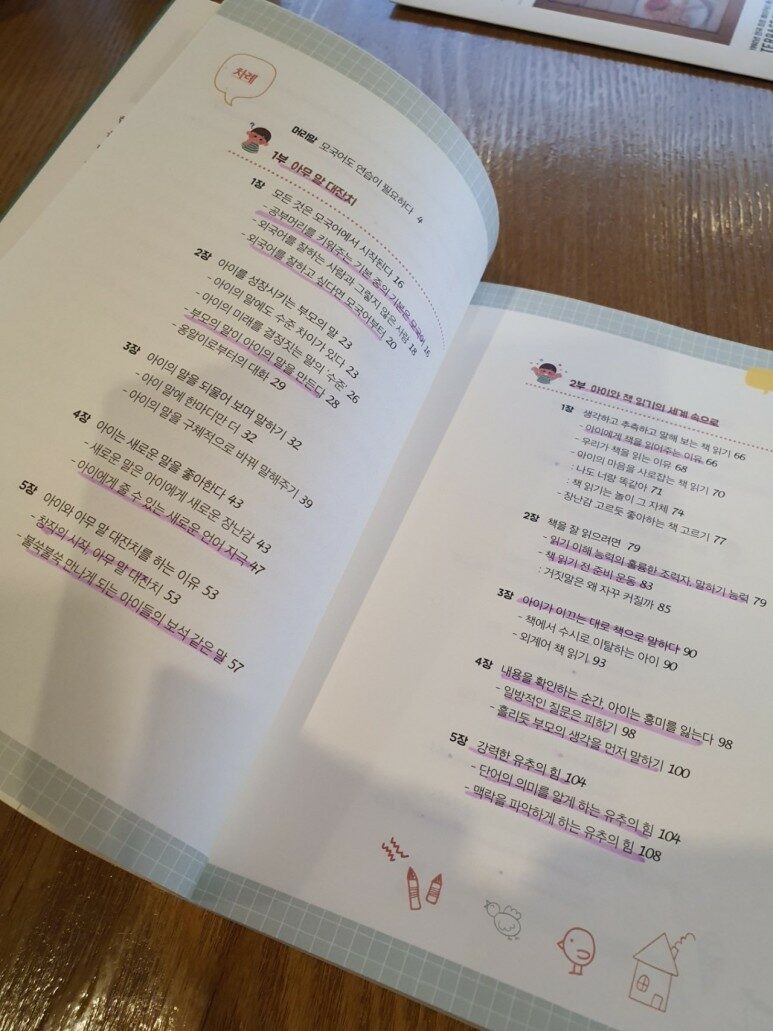 차례
머리말 모국어도 연습이 필요하다 4
1부 아무 말 대잔치
1장 모든 것은 모국어에서 시작된다 16
- 공부머리를 키워주는 기본 중의 기본은 모국어 16
- 외국어를 잘하는 사람과 그렇지 않은 사람 18
- 외국어를 잘하고 싶다면 모국어부터 20
2장 아이를 성장시키는 부모의 말 23
- 아이의 말에도 수준 차이가 있다 23
- 아이의 미래를 결정짓는 말의 '수준' 26
- 부모의 말이 아이의 말을 만든다 28
- 옹알이로부터의 대화 29
3장 아이의 말을 되물어 보며 말하기 32
- 아이 말에 한마디만 더 32
- 아이의 말을 구체적으로 바꿔 말해주기 39
4장 아이는 새로운 말을 좋아한다 43
- 새로운 말은 아이에게 새로운 장난감 43
- 아이에게 줄 수 있는 새로운 언어 자극 47
5장 아이와 아무 말 대잔치를 하는 이유 53
- 창작의 시작, 아무 말 대잔치 53
- 불쑥불쑥 만나게 되는 아이들의 보석 같은 말 57
2부 아이와 책 읽기의 세계 속으로
1장 생각하고 추측하고 말해 보는 책 읽기 66
- 아이에게 책을 읽어주는 이유 66
- 우리가 책을 읽는 이유 68
- 아이의 마음을 사로잡는 책 읽기 70
: 나도 너랑 똑같아 71
: 책 읽기는 놀이 그 자체 74
- 장난감 고르듯 좋아하는 책 고르기 77
2장 책을 잘 읽으려면 79
- 읽기 이해 능력의 훌륭한 조력자, 말하기 능력 79
- 책 읽기 전 준비 운동 83
: 거짓말은 왜 자꾸 커질까 85
3장 아이가 이끄는 대로 책으로 말하다 90
- 책에서 수시로 이탈하는 아이 90
- 외계어 책 읽기 93
4장 내용을 확인하는 순간, 아이는 흥미를 잃는다 98
- 일방적인 질문은 피하기 98
- 흘리듯 부모의 생각을 먼저 말하기 100
5장 강력한 유추의 힘 104
- 단어의 의미를 알게 하는 유추의 힘 104
- 맥락을 파악하게 하는 유추의 힘 108